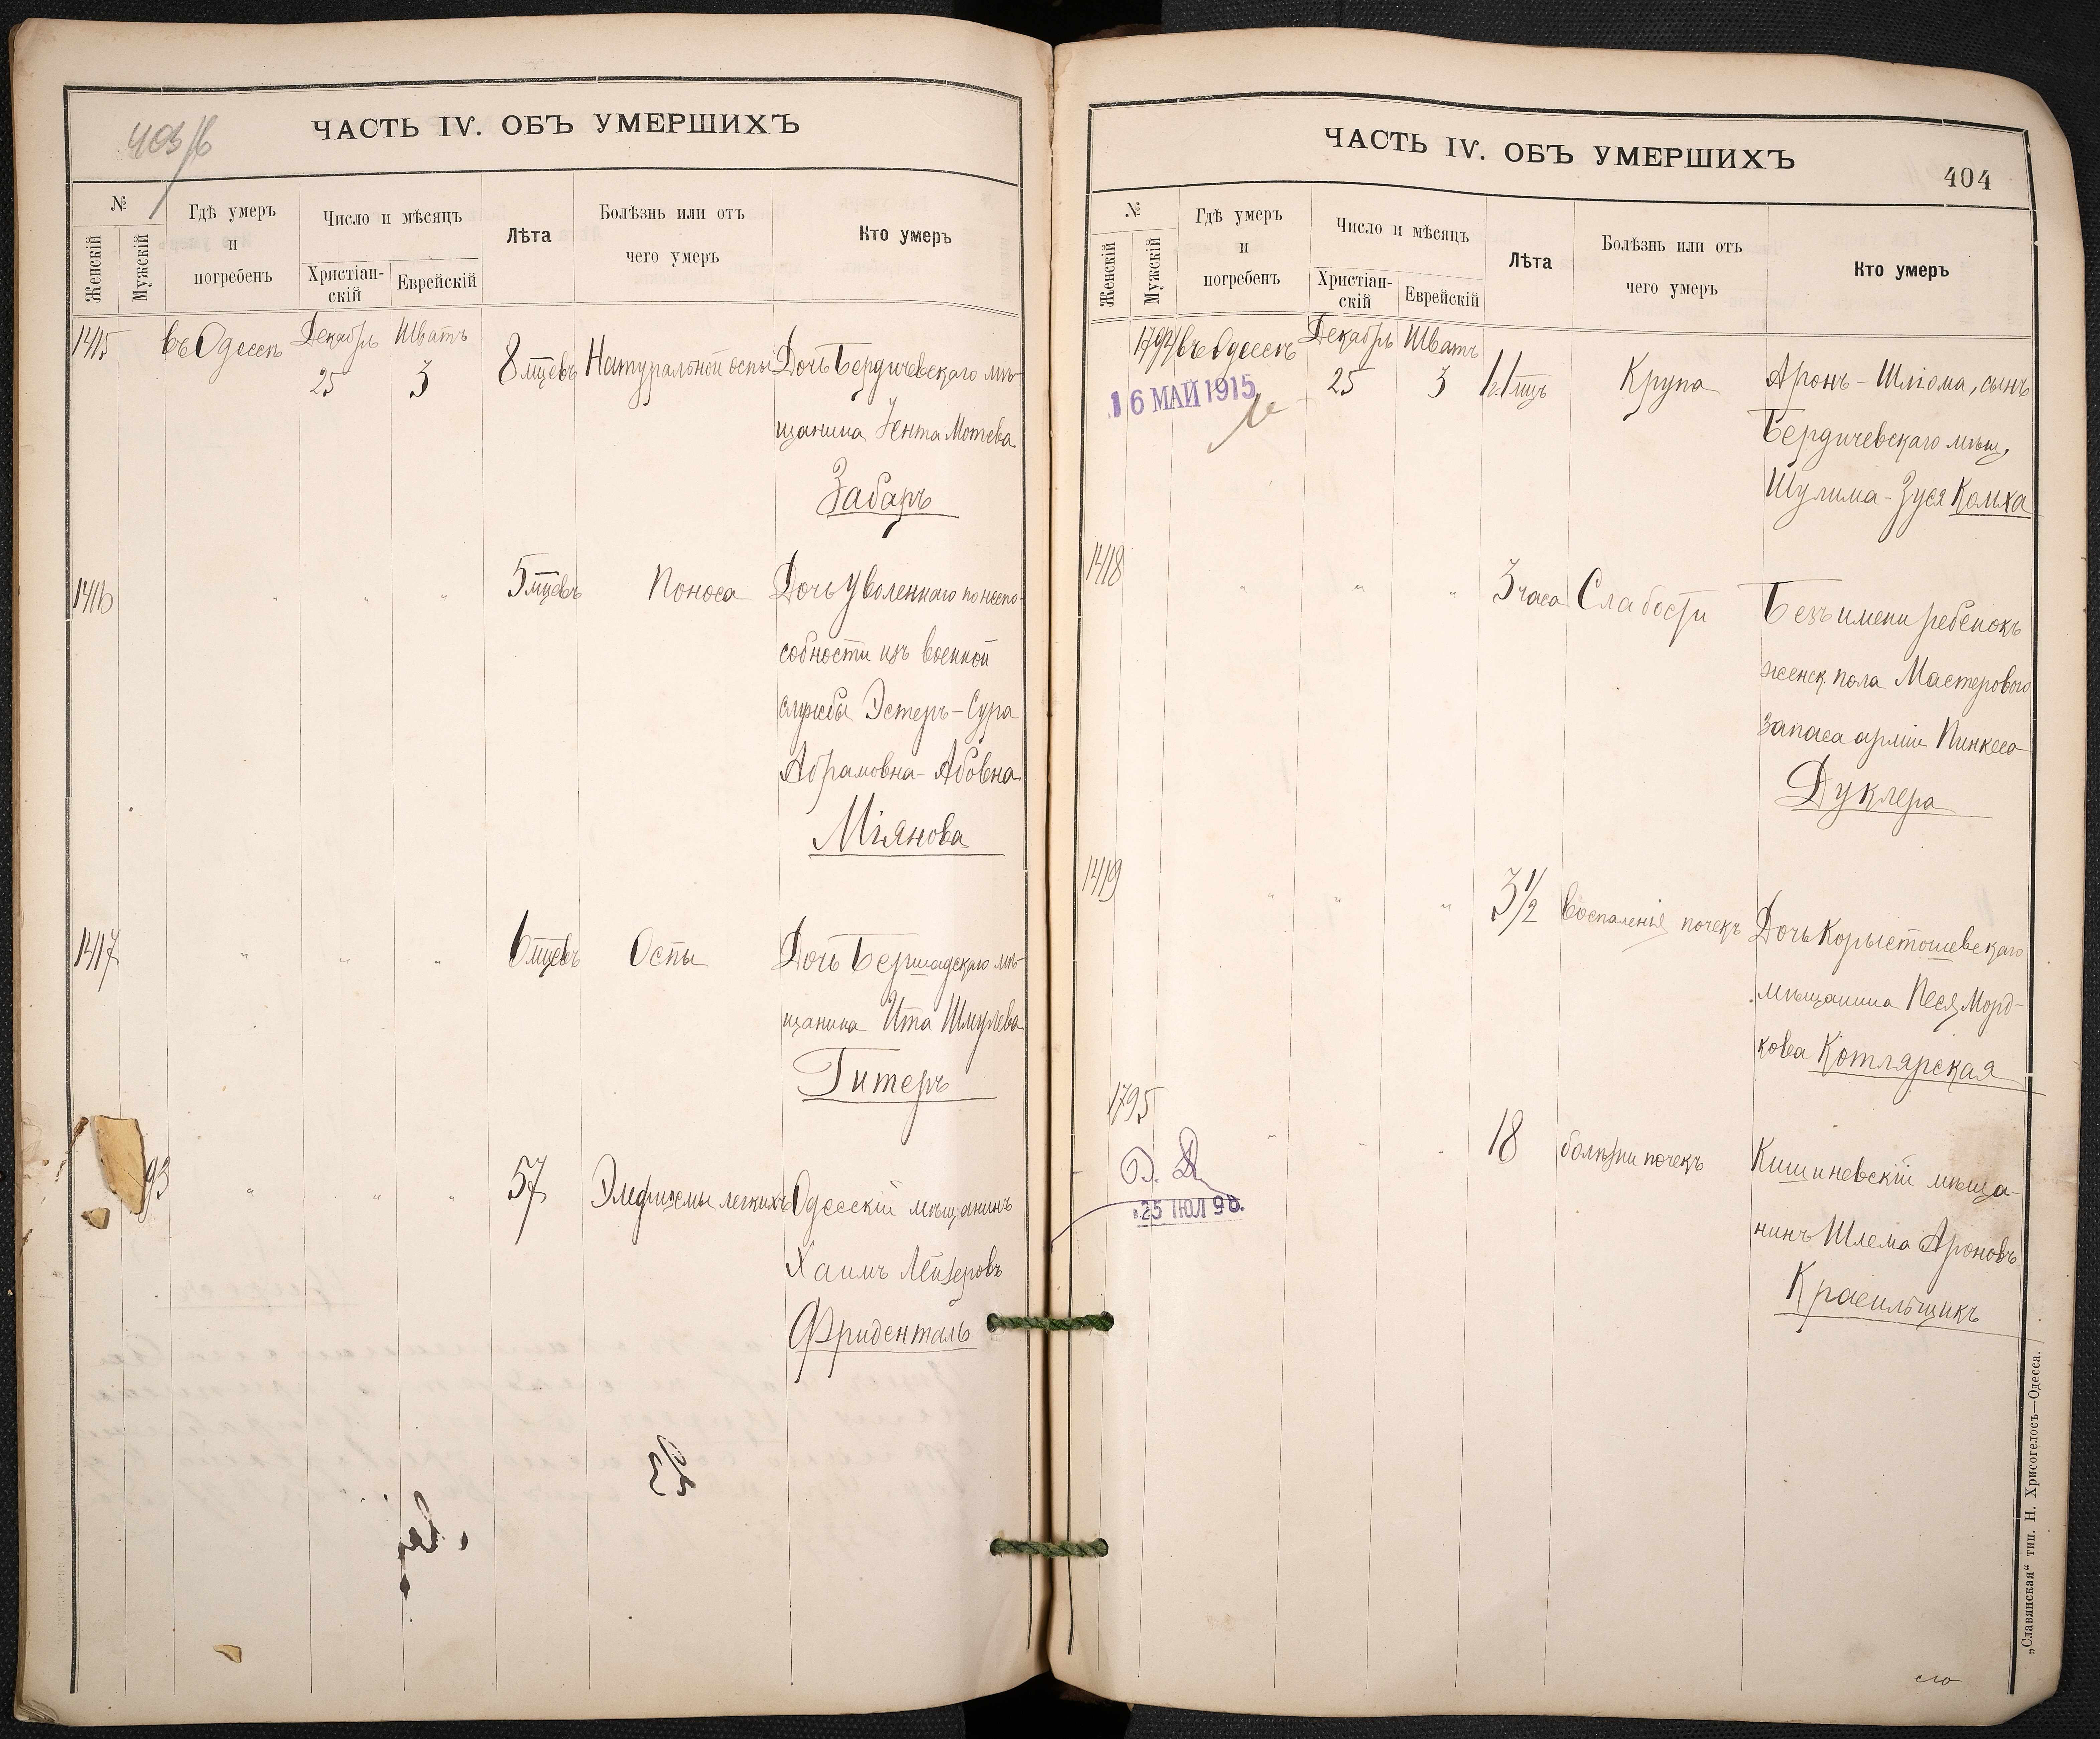 403/б
ЧАСТЬ IV. ОБЪ УМЕРШИХЪ
№
Женскій
Мужскій
Гдѣ умеръ
и
погребенъ
Число и мѣсяцъ
Христіан-
скій
Еврейскій
Лѣта
Болѣзнь или отъ
чего умеръ
Кто умеръ
1415 въ Одессѣ Декабрь 25 Шватъ 3 8 мцевъ Натуральной оспы Дочь Бердичевскаго мѣ-
щанина Ента Мотева
Забаръ
1416 " " " 5 мцевъ Поноса Дочь Уволеннаго по неспо-
собности изъ военной
службы Эстеръ-Сура
Абрамовна-Абовна
Міянова
1417 " " " 6 мцевъ Оспы Дочь Бершадскаго мѣ-
щанина Ита Шмулева
Гитеръ
93 " " " 57 Эмфиземы легкихъ Одесскій мѣщанинъ
Хаимъ Лейзеровъ
Фриденталь
ЧАСТЬ IV. ОБЪ УМЕРШИХЪ
404
№
Женскій
Мужскій
Гдѣ умеръ
и
погребенъ
Число и мѣсяцъ
Христіан-
скій
Еврейскій
Лѣта
Болѣзнь или отъ
чего умеръ
Кто умеръ
1794 въ Одессѣ Декабрь 25 Шватъ 3 1 г. 1 мцъ Крупа Аронъ-Шліома, сынъ
16 МАЙ 1915
Бердичевскаго мѣщ.
Шулима-Зуся Комха
1418 " " " 3 часа Слабости Безъ имени ребенокъ
женск. пола Мастерового
запаса арміи Пинкеса
Дуклера
1419 " " " 3 1/2 Воспаленія почекъ Дочь Корыстошевскаго
мѣщанина Песя Морд-
кова Котлярская
1795 " " " 18 болѣзни почекъ Кишиневскій мѣща-
25 ІЮЛ 98.
нинъ Шлема Ароновъ
Красильщикъ
„Славянская“ тип. Н. Хрисогелосъ—Одесса.